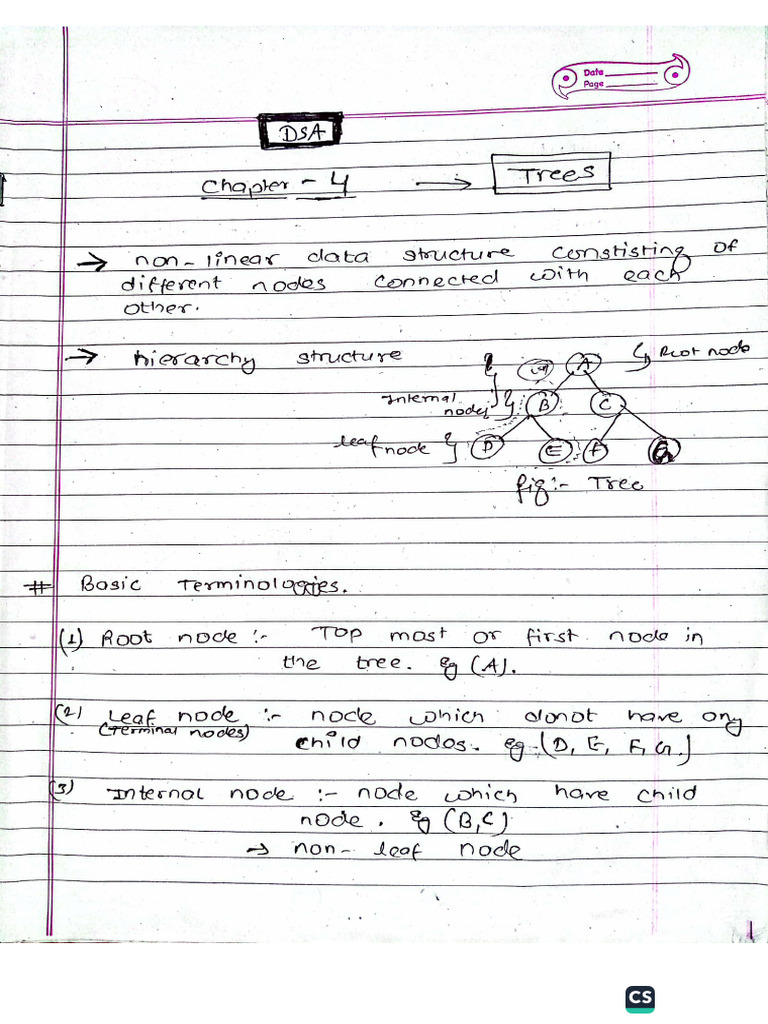 Date
Page
DSA
Chapter - 4 → Trees
→ non-linear data structure constisting of
different nodes connected with each
other.
→ hierarchy structure
A
Root node
Internal
nodes
B
C
leaf node
D
E
F
G
fig:- Tree
# Basic Terminologies.
(1) Root node :- Top most or first node in
the tree. eg (A).
(2) Leaf node :- node which donot have any
(Terminal nodes)
child nodos. eg (D, E, F, G.)
(3) Internal node :- node which have child
node. eg (B,C)
→ non-leaf node
1
CS